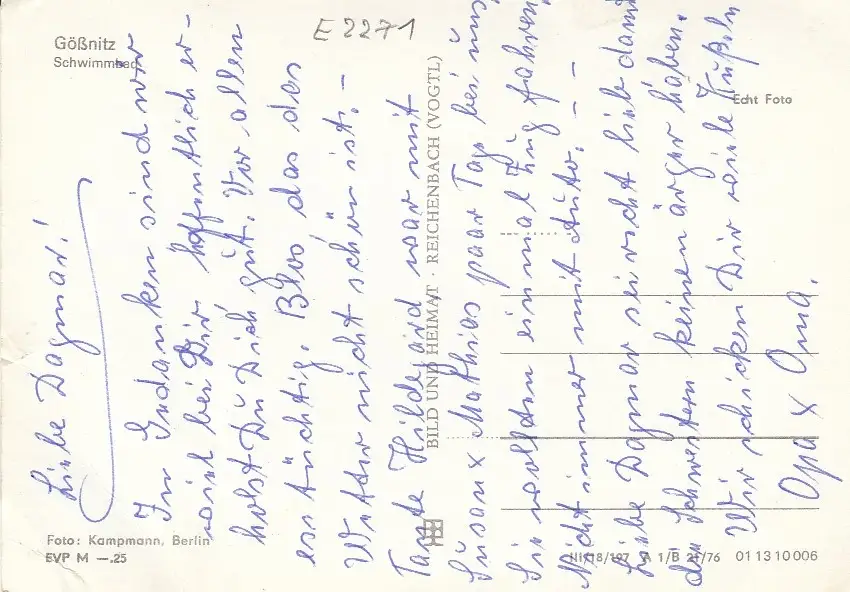 E2271
Gößnitz
Schwimmbad
Echt Foto
Liebe Dagmar!
In Gedanken sind wir
viel bei Dir hoffentlich er-
holst Du Dich gut. Vor allen
ess tüchtig. Blos das das
Wetter nicht schön ist. –
Tante Hildegard war mit
Susan x Mathias paar Tage bei uns
Sie wollten einmal Zug fahren
Nicht immer mit Auto. – –
Liebe Dagmar sei recht lieb damit
die Schwestern keinen ärger haben.
Wir schicken Dir viele Küßeln
Opa x Oma.
BILD UND HEIMAT · REICHENBACH (VOGTL)
Foto: Kampmann, Berlin
EVP M —.25
III/18/197 A 1/B 21/76 01 13 10 006